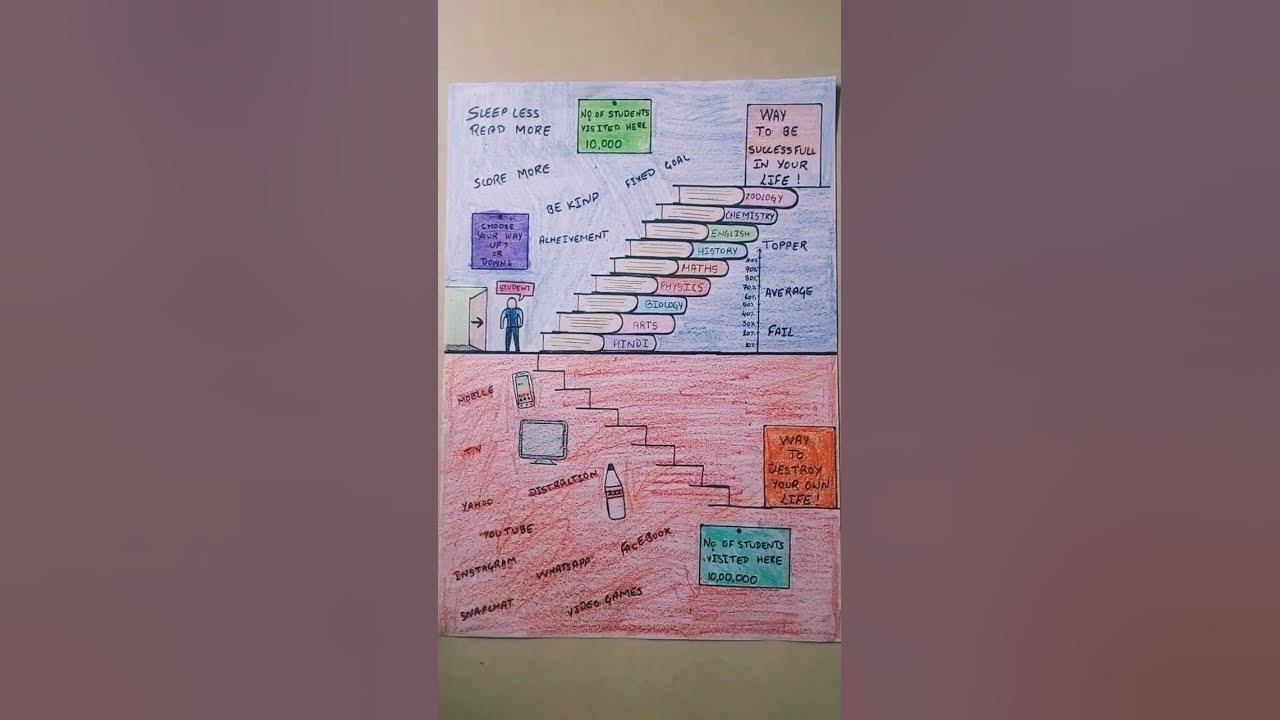 SLEEP LESS
READ MORE
NO OF STUDENTS
VISITED HERE
10,000
WAY
TO BE
SUCCESSFULL
IN YOUR
LIFE!
SCORE MORE
FIXED GOAL
BE KIND
ACHEIVEMENT
CHOOSE
YOUR WAY
UP?
OR
DOWN
STUDENT
ZOOLOGY
CHEMISTRY
ENGLISH
HISTORY
MATHS
PHYSICS
BIOLOGY
ARTS
HINDI
TOPPER
AVERAGE
FAIL
100%
90%
80%
70%
60%
50%
40%
30%
20%
10%
MOBILE
TV
DISTRACTION
YAHOO
YOUTUBE
INSTAGRAM
WHATSAPP
FACEBOOK
SNAPCHAT
VIDEO GAMES
WAY
TO
DESTROY
YOUR OWN
LIFE!
NO OF STUDENTS
VISITED HERE
10,00,000